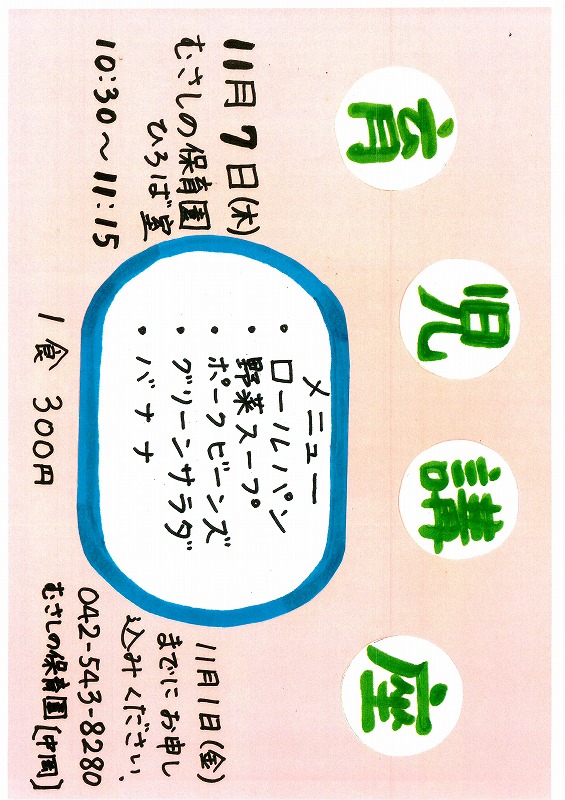 育児講座
11月7日(木)
むさしの保育園
ひろば室
10:30〜11:15
メニュー
・ロールパン
・野菜スープ
・ポークビーンズ
・グリーンサラダ
・バナナ
1食 300円
11月1日(金)
までにお申し
込みください。
042-543-8280
むさしの保育園[中岡]